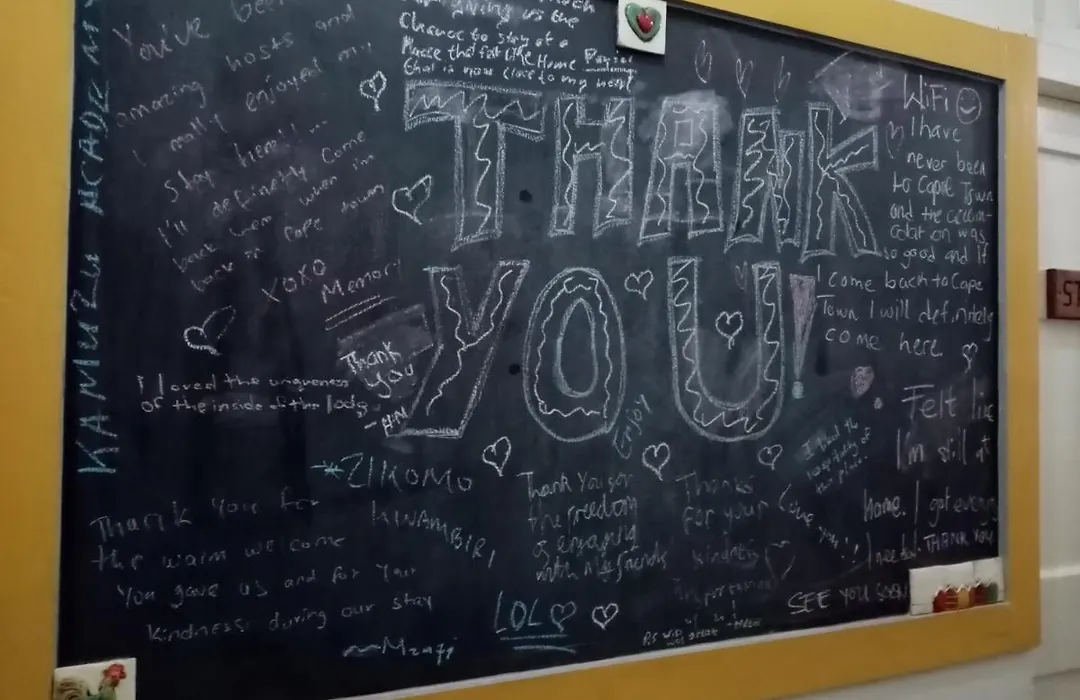 KAMUZU ACADEMY
You've been
amazing hosts and
I really enjoyed my
stay here!...
I'll definetly come
back when im
back in Cape Town
XOXO
Memory
giving us the
Chance to stay at a
Place that felt like Home
that is now close to my heart
THANK
YOU!
WiFi
I have
never been
to Cape Town
and the accom-
odation was
so good and if
I come back to Cape
Town I will definitely
come here.
I loved the uniqueness
of the inside of the lodge
Thank
You
Enjoy
Felt like
I'm still at
home. I got everything
I needed. THANK YOU
SEE YOU SOON
ZIKOMO
KWAMBIRI
Thank you for
the warm welcome
You gave us and for your
kindness during our stay
Thank you for
the freedom
of enjoying
with my friends
LOL
Thanks
for your
kindness
Love you!!
I loved the
hospitality of
this place.
P.S WiFi
was great
-ST